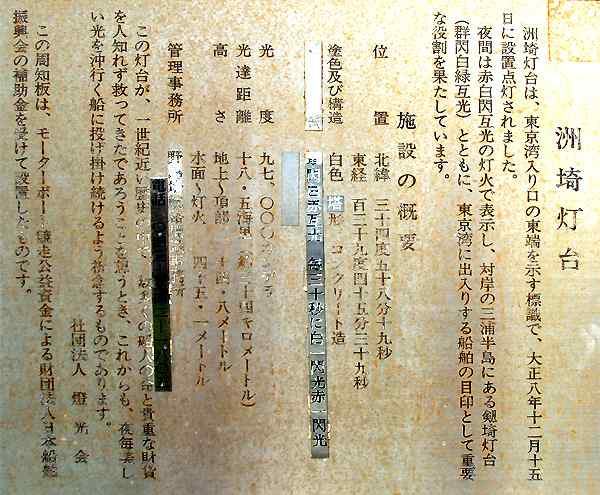 洲埼灯台
洲埼灯台は、東京湾入り口の東端を示す標識で、大正八年十二月十五
日に設置点灯されました。
夜間は赤白閃互光の灯火で表示し、対岸の三浦半島にある剱埼灯台
（群閃白緑互光）とともに、東京湾に出入りする船舶の目印として重要
な役割を果たしています。
施設の概要
位置 北緯 三十四度五十八分十九秒
東経 百三十九度四十五分三十九秒
塗色及び構造 白色 塔形 コンクリート造
毎三十秒に白一閃光赤一閃光
光度 九七、〇〇〇
光達距離 十八・五海里 キロメートル）
高さ 地上〜頂部 ・八メートル
水面〜灯火 四十五・一メートル
管理事務所
電話
この灯台が、一世紀近い 人命と貴重な財貨
を人知れず救ってきたであろうことを思うとき、これからも、夜毎美し
い光を沖行く船に投げ掛け続けるよう祈念するものであります。
社団法人 燈光会
この周知板は、モーターボート競走公益資金による財団法人日本船舶
振興会の補助金を受けて設置したものです。